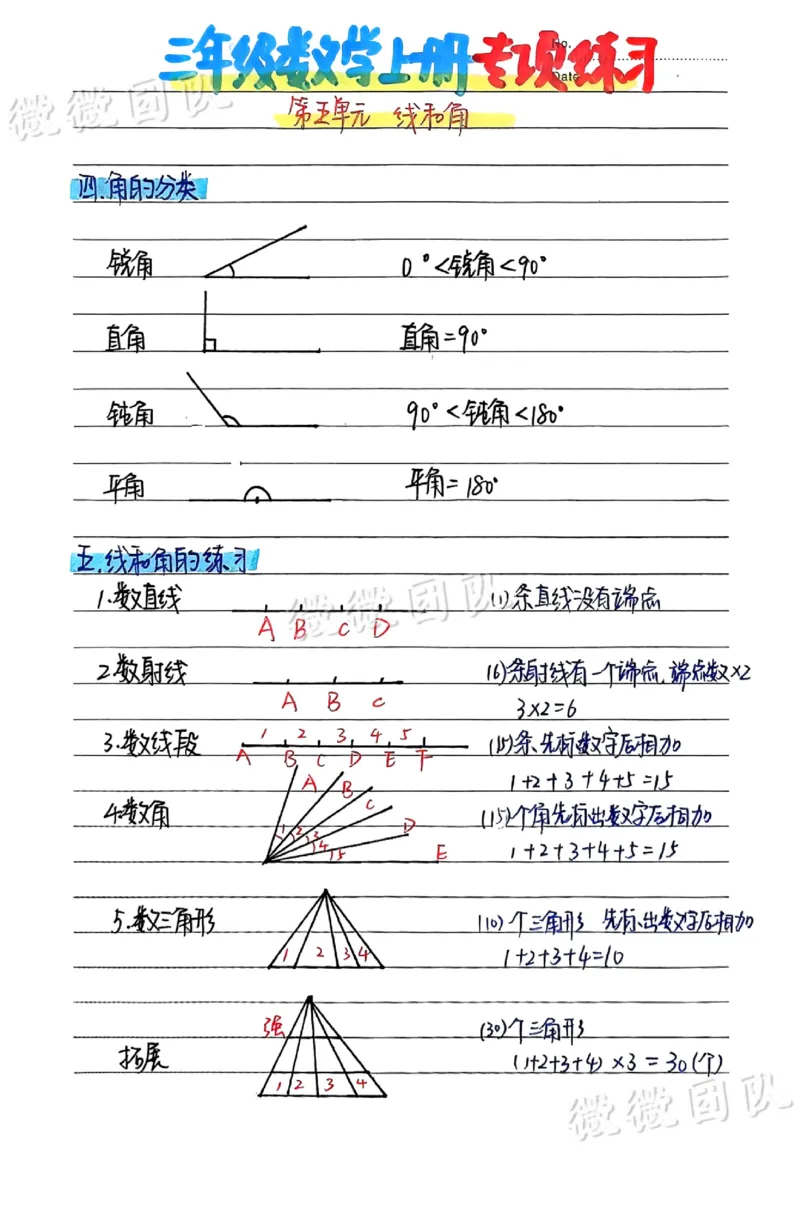 三年级数学上册专项练习
No.
Date
微微团队
第五单元 线和角
四.角的分类
锐角 0°<锐角<90°
直角 直角=90°
钝角 90°<钝角<180°
平角 平角=180°
五.线和角的练习
1.数直线 (1)条直线没有端点
A B C D
微微团队
2.数射线 (6)条射线有一个端点,端点数×2
A B C 3×2=6
1 2 3 4 5
3.数线段 (15)条、先标数字后相加
A B C D E F
1+2+3+4+5=15
A B C D E
4.数角 (15)个角先标出数字后相加
1 2 3 4 5
1+2+3+4+5=15
5.数三角形 (10)个三角形 先标出数字后相加
1 2 3 4 1+2+3+4=10
强 (30)个三角形
拓展 (1+2+3+4)×3=30(个)
1 2 3 4
微微团队